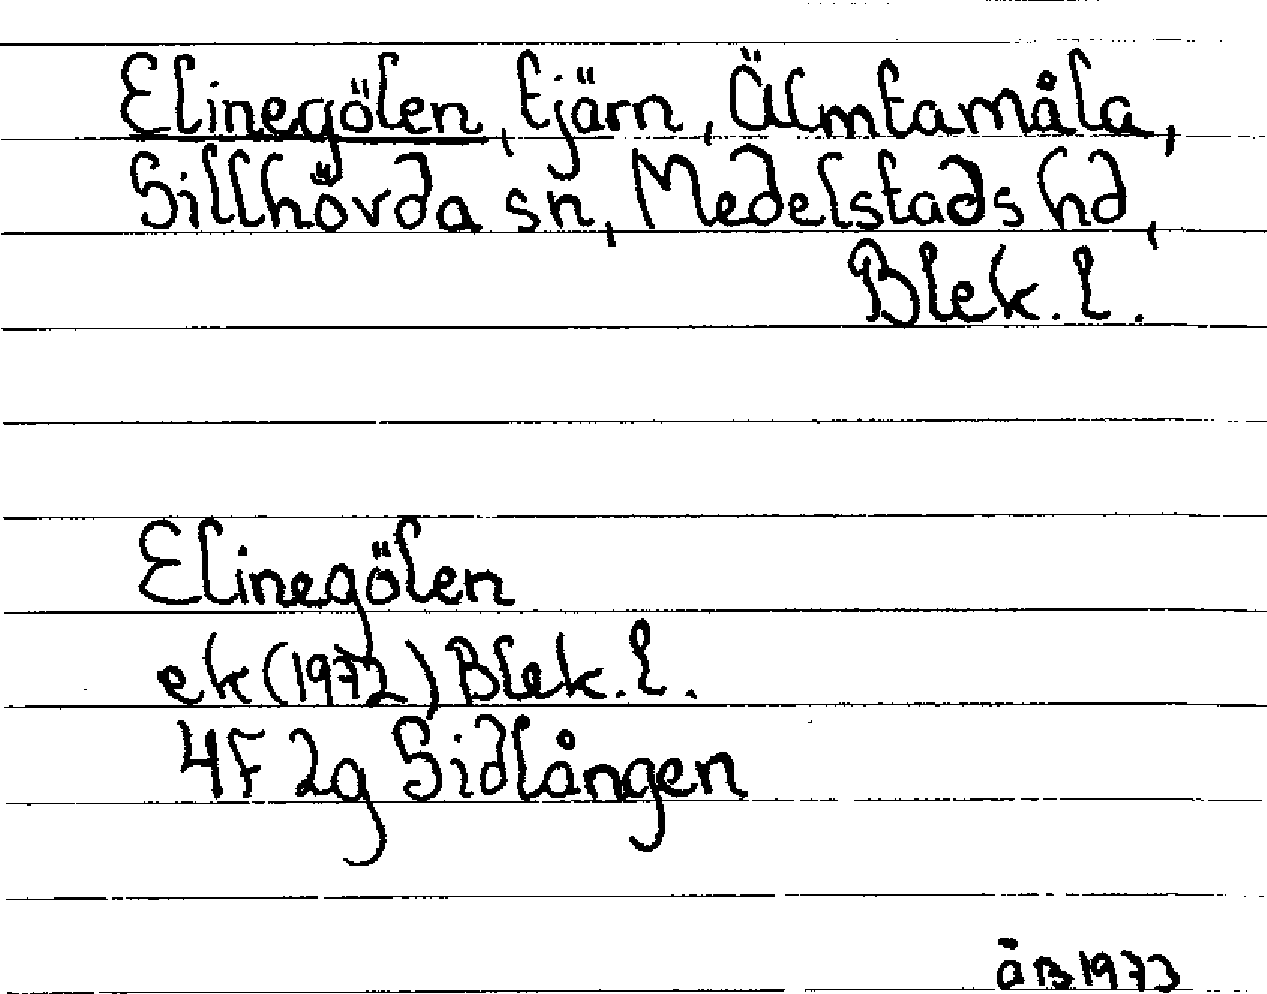 Elinegölen, tjärn, Älmtamåla,
Sillhövda sn, Medelstads hd,
Blek. l.
Elinegölen
ek (1972) Blek. l.
4F 2g Sidlången
åB 1973